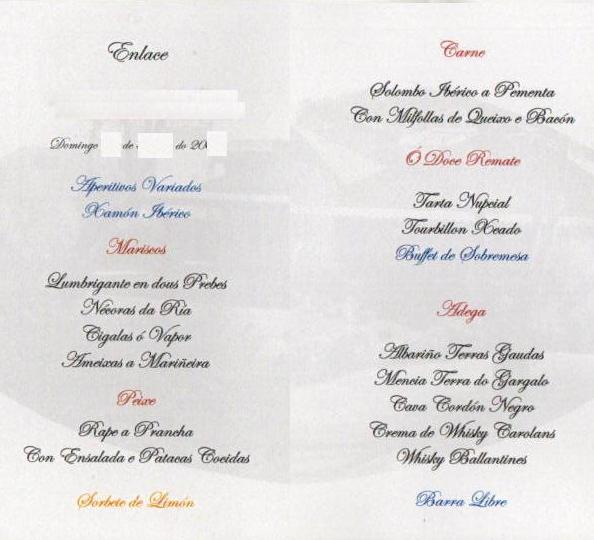 Enlace
Domingo de do 20
Aperitivos Variados
Xamón Ibérico
Mariscos
Lumbrigante en dous Prebes
Nécoras da Ría
Cigalas ó Vapor
Ameixas a Mariñeira
Peixe
Rape a Prancha
Con Ensalada e Patacas Cocidas
Sorbete de Limón
Carne
Solombo Ibérico a Pementa
Con Milfollas de Queixo e Bacón
Ó Doce Remate
Tarta Nupcial
Tourbillon Xeado
Buffet de Sobremesa
Adega
Albariño Terras Gaudas
Mencia Terra do Gargalo
Cava Cordón Negro
Crema de Whisky Carolans
Whisky Ballantines
Barra Libre